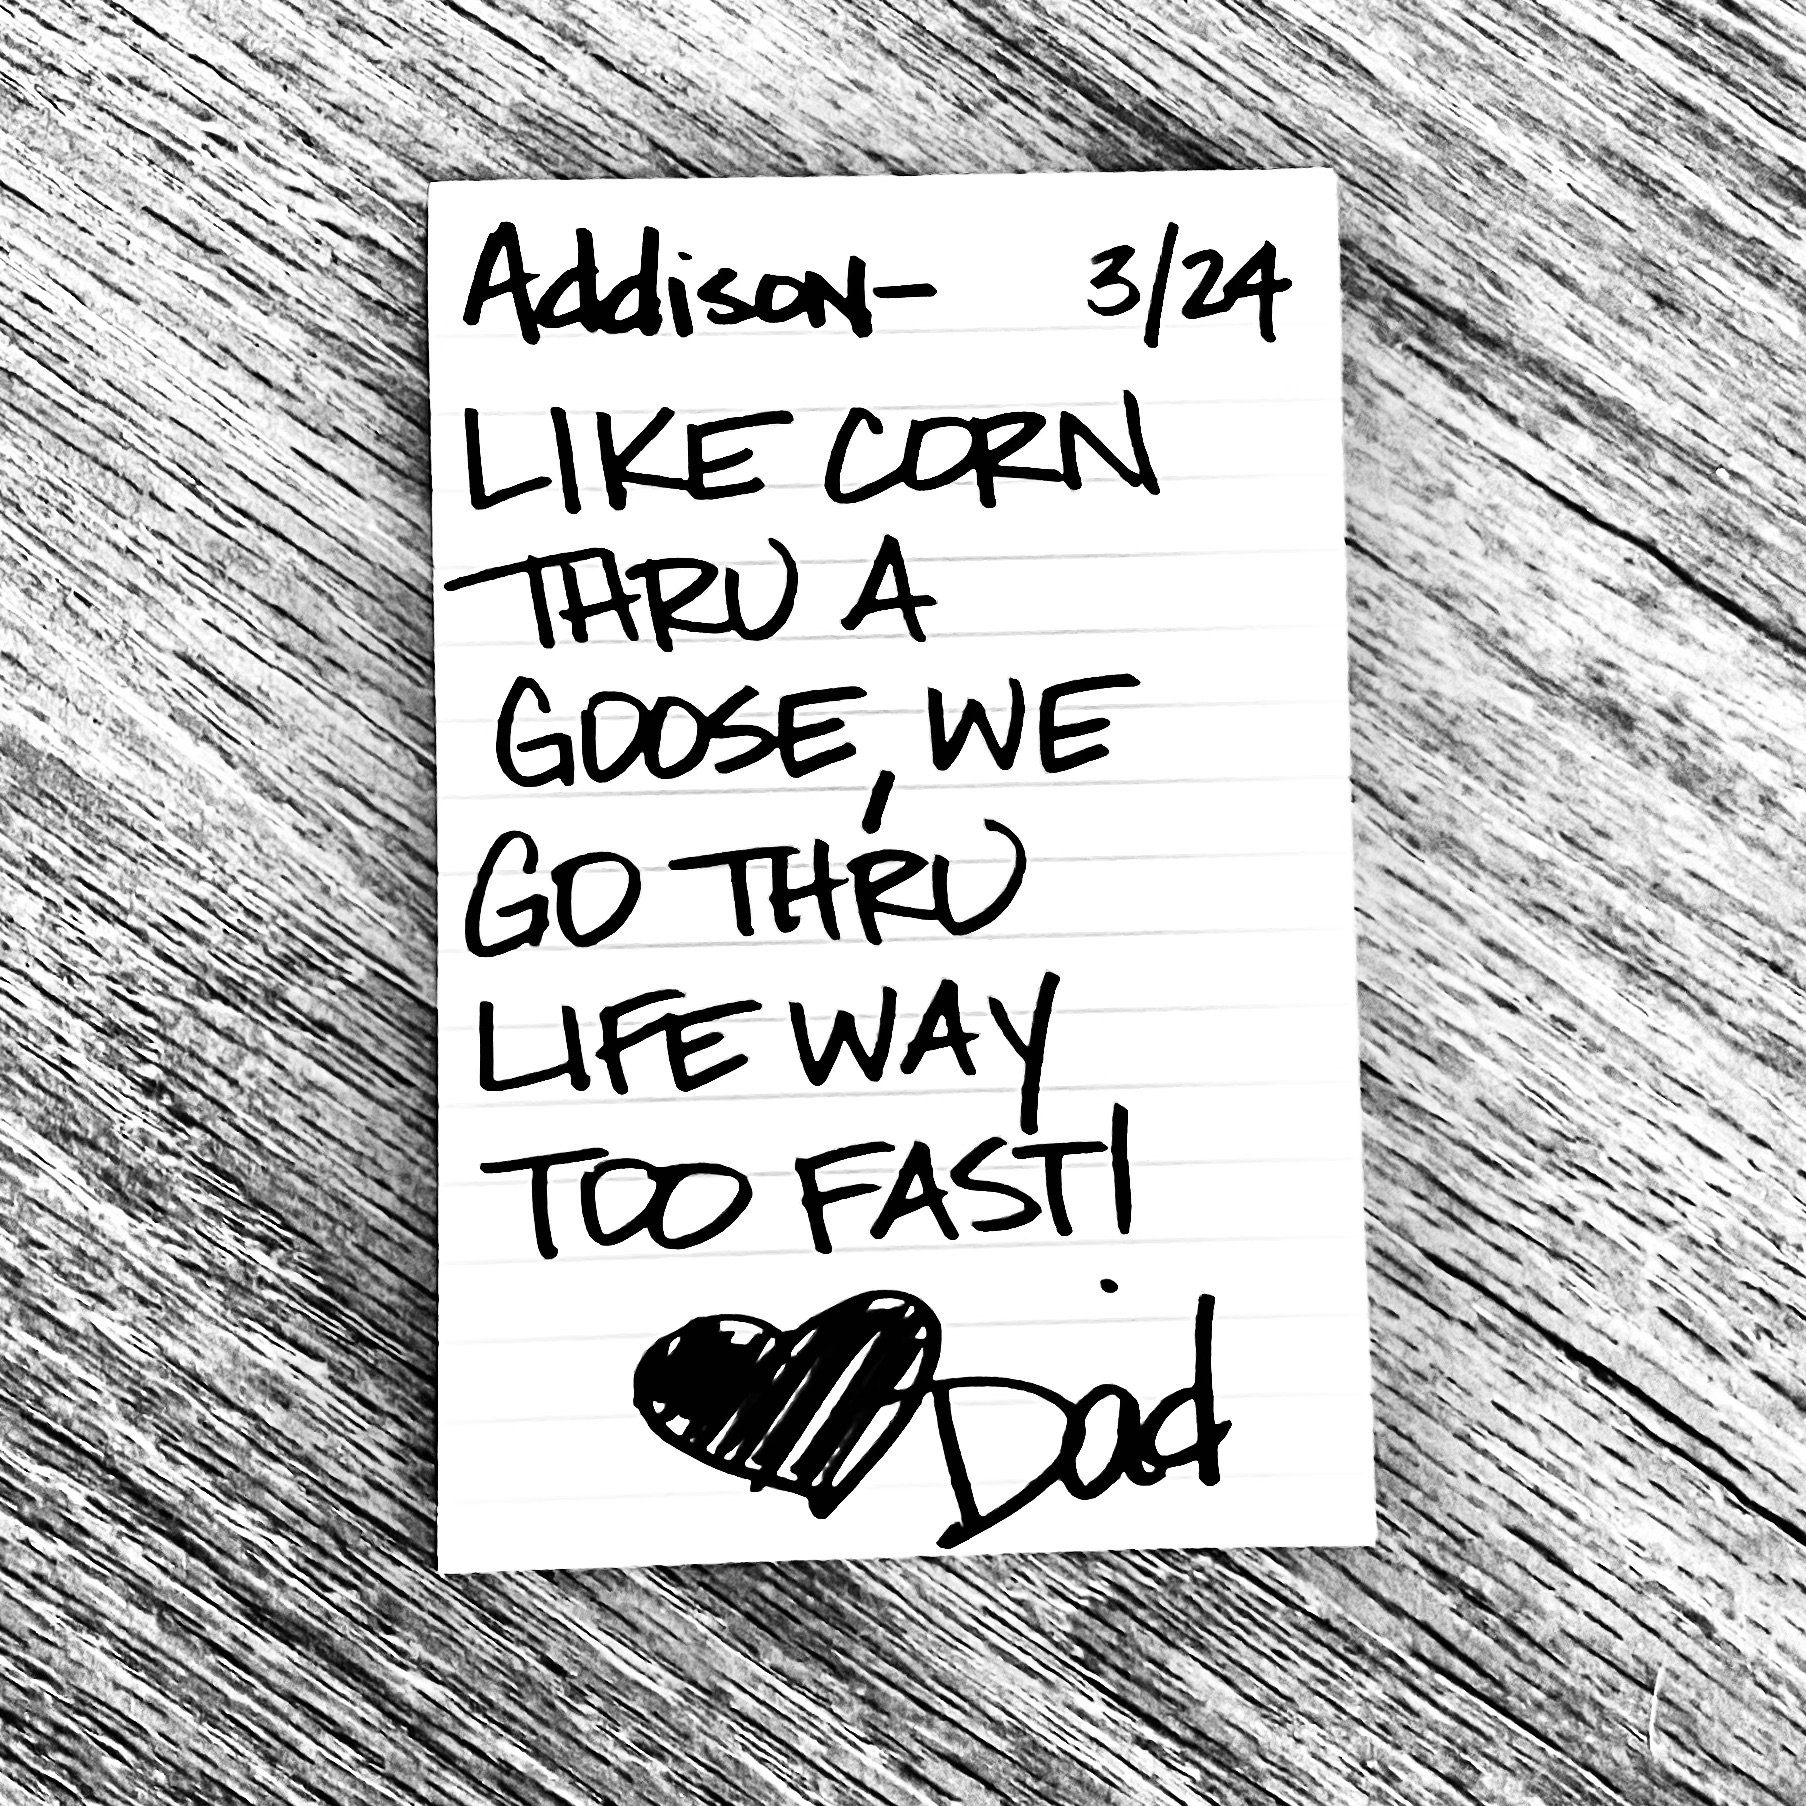 Addison- 3/24
LIKE CORN
THRU A
GOOSE, WE
GO THRU
LIFE WAY
TOO FAST!
Dad